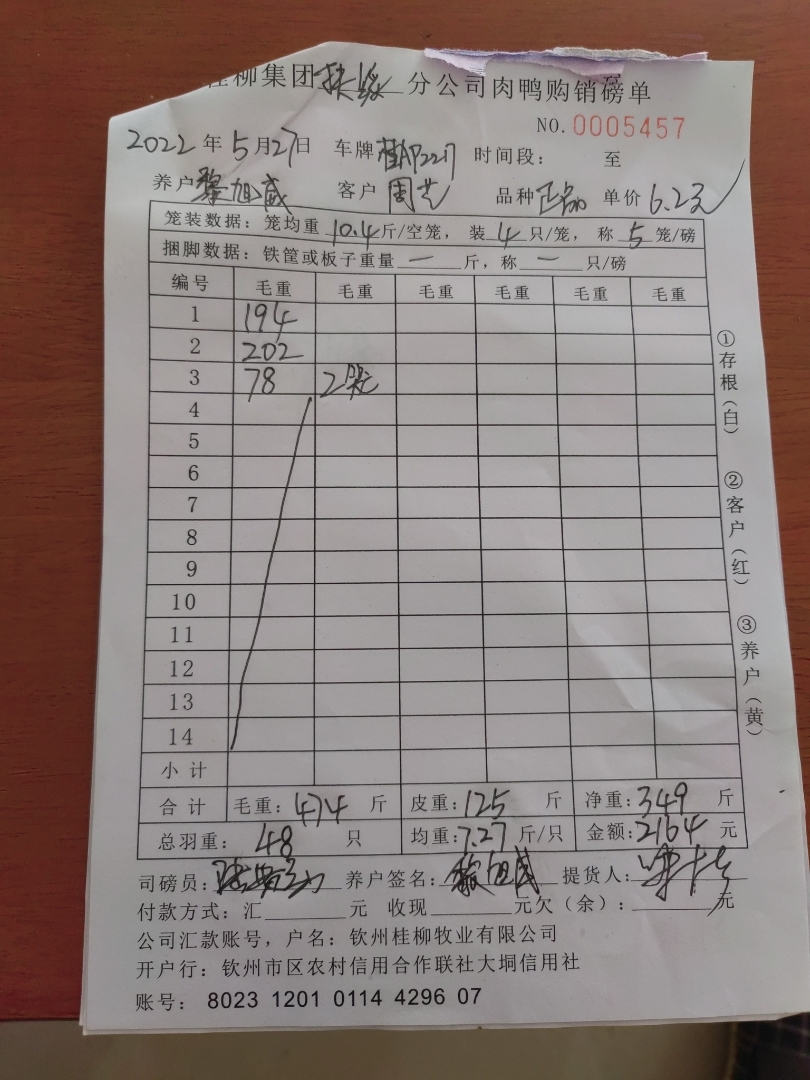 桂柳集团扶绥分公司肉鸭购销磅单
NO.0005457
2022年5月27日 车牌 时间段： 至
养户黎旭威 客户周艺 品种 单价6.2元
笼装数据：笼均重10.4斤/空笼，装4只/笼，称5笼/磅
捆脚数据：铁筐或板子重量一斤，称一只/磅
编号 毛重 毛重 毛重 毛重 毛重 毛重
1 194
2 202
3 78 2笼
4
5
6
7
8
9
10
11
12
13
14
小计
合计 毛重：474斤 皮重：125斤 净重：349斤
总羽重：48只 均重：7.27斤/只 金额：2164元
司磅员： 养户签名：黎旭威 提货人：
付款方式：汇 元 收现 元欠（余）： 元
公司汇款账号，户名：钦州桂柳牧业有限公司
开户行：钦州市区农村信用合作联社大垌信用社
账号：8023 1201 0114 4296 07
①存根（白）
②客户（红）
③养户（黄）